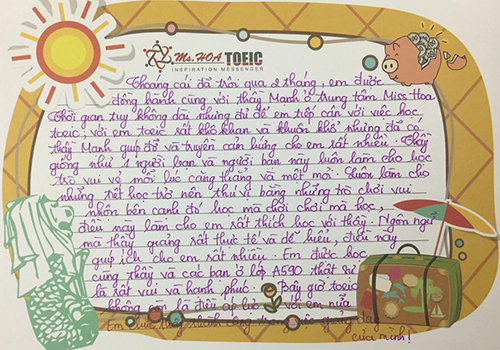 Ms. HOA TOEIC
INSPIRATION MESSENGER
Thoáng cái đã trôi qua 2 tháng, em được
đồng hành cùng với thầy Mạnh ở trung tâm Miss Hoa
Thời gian tuy không dài nhưng đủ để em tiếp cận với việc học
toeic, với em toeic rất khó khăn và khuôn khổ nhưng đã có
thầy Mạnh giúp đỡ và truyền cảm hứng cho em rất nhiều. Thầy
giống như 1 người bạn và người bạn này luôn làm cho học
trò vui vẻ mỗi lúc căng thẳng và mệt mỏi. Luôn làm cho
những tiết học trở nên thú vị bằng những trò chơi vui
nhộn bên cạnh đó học mà chơi chơi mà học,
điều này làm cho em rất thích học với thầy. Ngôn ngữ
mà thầy giảng rất thực tế và dễ hiểu, điều này
giúp ích cho em rất nhiều. Em được học
cùng thầy và các bạn ở lớp A590 thật sự
là rất vui và hạnh phúc. Bây giờ toeic
không còn là điều áp lực với em nữa.
Em chúc thầy thành công trong việc giảng dạy
của mình!